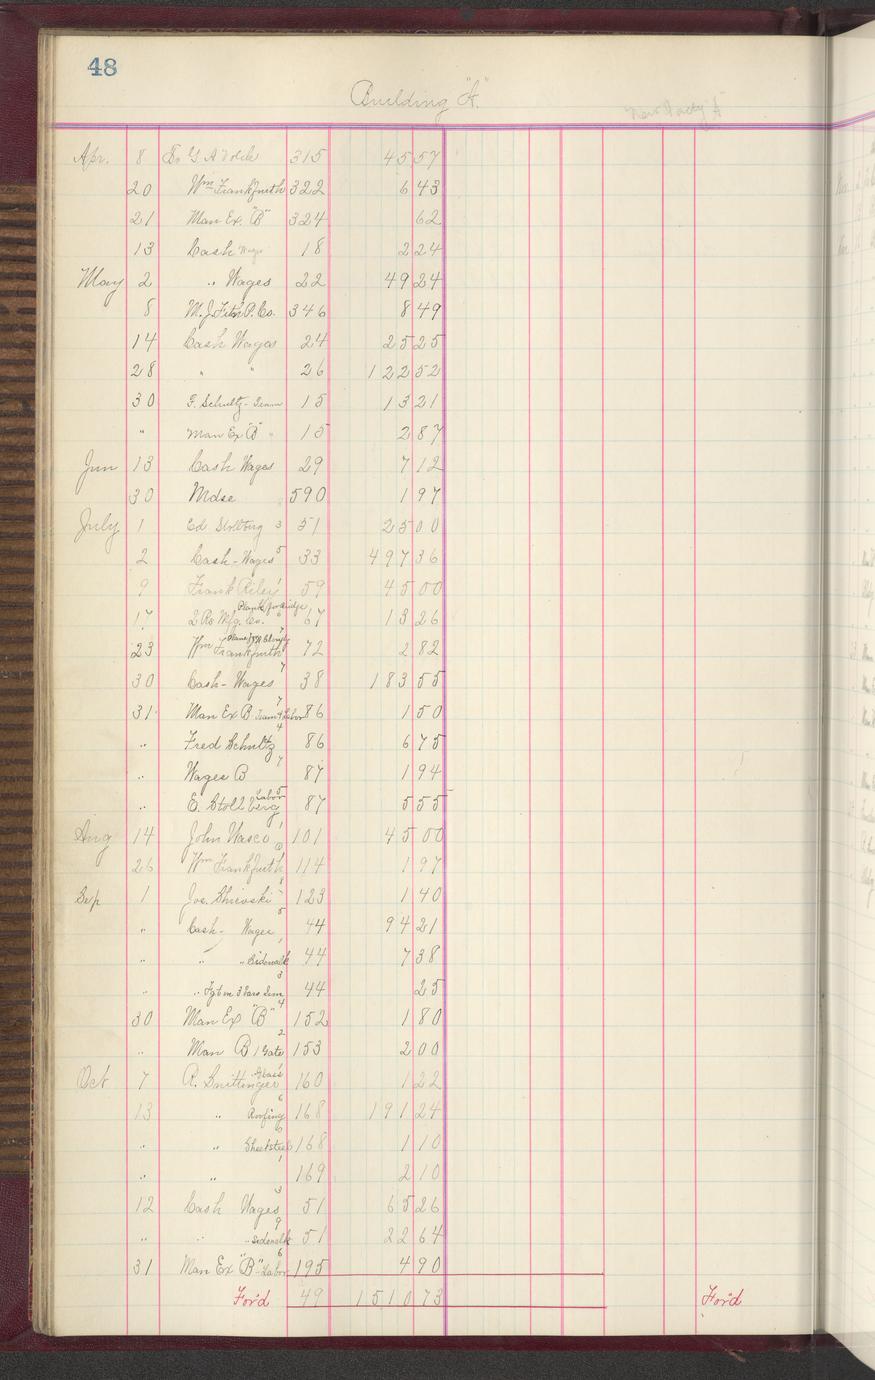 48
Building "A"
Apr. 8 To G A 315 45 57
20 Wm Frankfurth 322 6 43
21 Man Ex. "B" 324 62
13 Cash Wages 18 2 24
May 2 " Wages 22 49 24
8 M. J. P. Co. 346 8 49
14 Cash Wages 24 25 25
28 " " 26 122 52
30 F. Schultz - Team 15 13 21
" Man Ex "B" " 15 2 87
Jun 13 Cash Wages 29 7 12
30 Mdse 590 1 97
July 1 Ed Stollberg 3 51 25 00
2 Cash - Wages 5 33 497 36
9 Frank Riley 1 59 45 00
17 Mfg. Co. 67 13 26
23 Wm Frankfurth 7 72 2 82
30 Cash - Wages 7 38 183 55
31 Man Ex B Team & Labor 7 86 1 50
" Fred Schultz 4 86 6 75
" Wages B 7 87 1 94
" E. Stollberg Labor 5 87 5 55
Aug 14 John Wasco 1 101 45 00
26 Wm Frankfurth 6 114 1 97
Sep 1 Jos. 123 1 40
" Cash - Wages 5 44 94 21
" " " Sidewalk 1 44 7 38
" " Fgt on 3 44 25
30 Man Ex "B" 4 152 1 80
" Man B 1 Gate 2 153 2 00
Oct 7 R. Glass 160 1 22
13 " Roofing 6 168 191 24
" " Sheetsteel 6 168 1 10
" " 1 169 2 10
12 Cash Wages 3 51 65 26
" " " Sidewalk 9 51 22 64
31 Man Ex "B" - Labor 6 195 4 90
For'd 49 1510 73 For'd